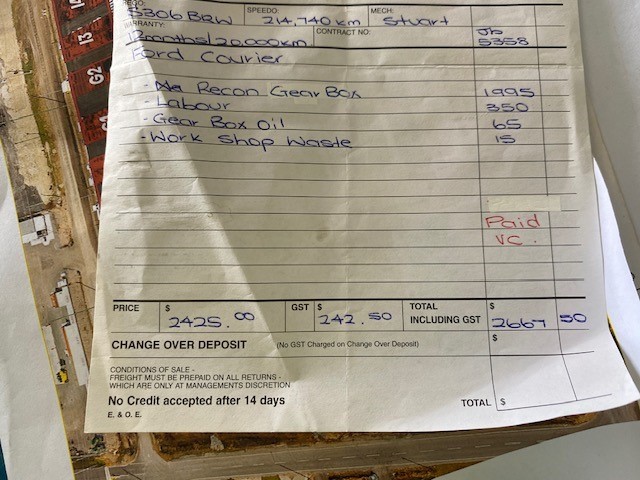 REGO: SPEEDO: MECH:
5306 BRW 214,740 km Stuart
WARRANTY: CONTRACT NO: Jb
12 months/20,000km 5358
Ford Courier
- Recon Gear Box 1995
- Labour 350
- Gear Box Oil 65
- Work Shop Waste 15
Paid
VC.
PRICE $ 2425.00 GST $ 242.50 TOTAL INCLUDING GST $ 2667 50
CHANGE OVER DEPOSIT (No GST Charged on Change Over Deposit) $
CONDITIONS OF SALE -
FREIGHT MUST BE PREPAID ON ALL RETURNS -
WHICH ARE ONLY AT MANAGEMENTS DISCRETION
No Credit accepted after 14 days TOTAL $
E. & O. E.
13
G2